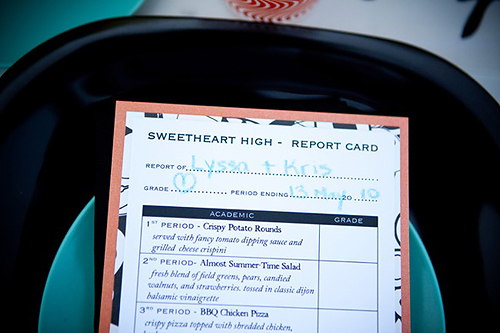 SWEETHEART HIGH - REPORT CARD
REPORT OF Lyssa + Kris
GRADE 1 PERIOD ENDING 13 May 20 10
ACADEMIC GRADE
1ST PERIOD - Crispy Potato Rounds
served with fancy tomato dipping sauce and
grilled cheese crispini
2ND PERIOD - Almost Summer-Time Salad
fresh blend of field greens, pears, candied
walnuts, and strawberries. tossed in classic dijon
balsamic vinaigrette
3RD PERIOD - BBQ Chicken Pizza
crispy pizza topped with shredded chicken,